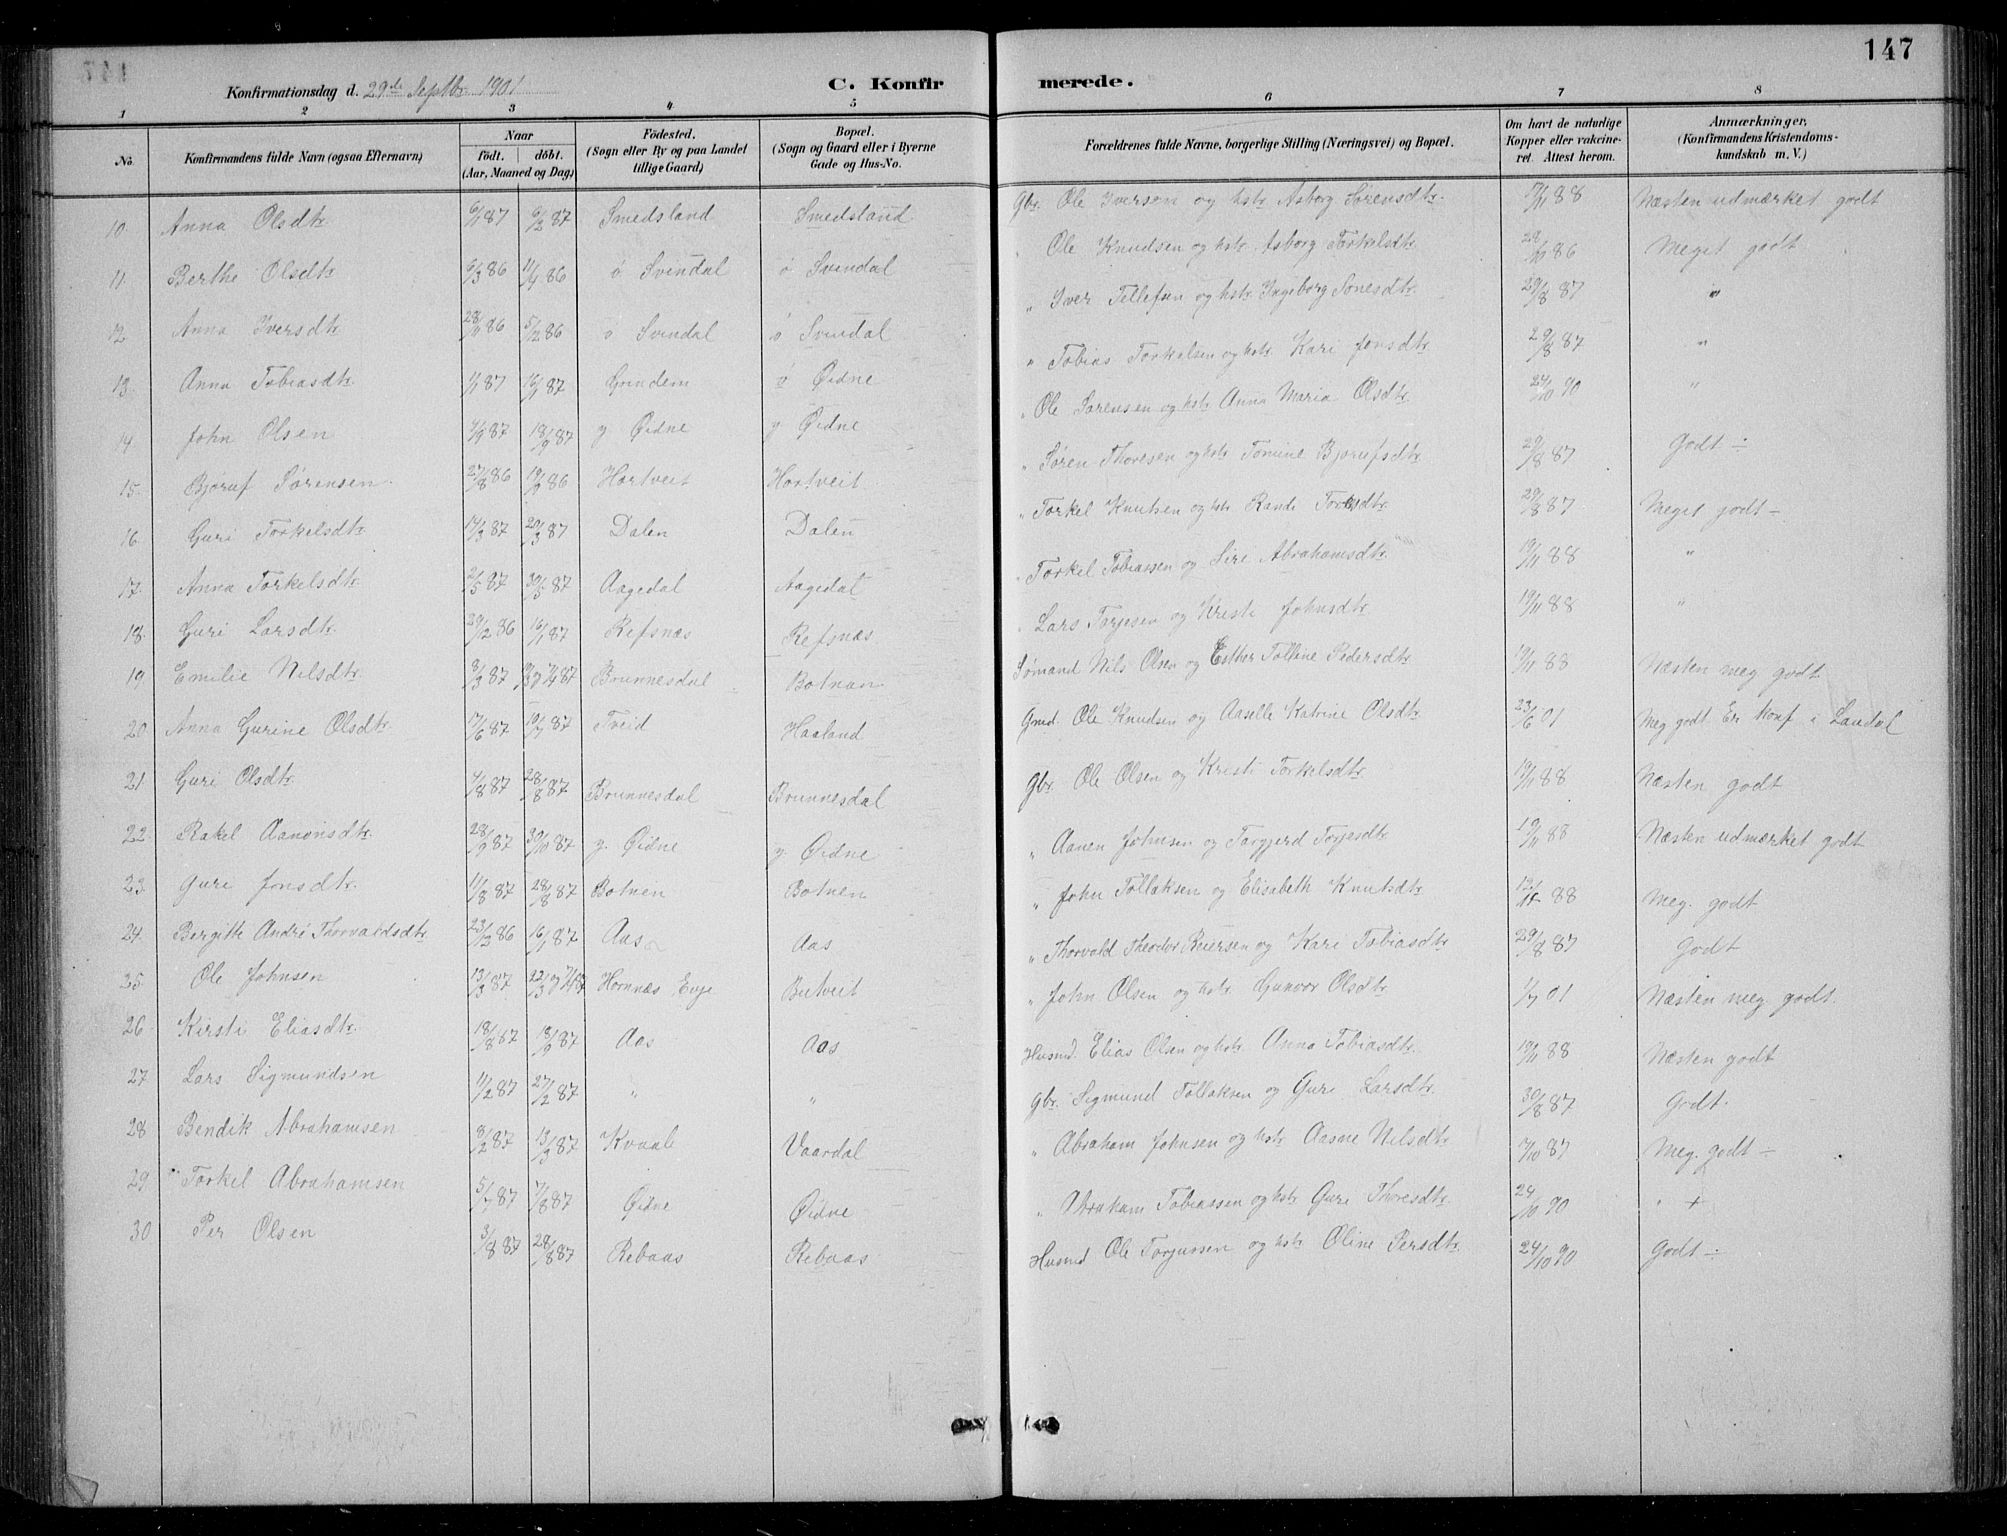 147
Konfirmationsdag d. 29de Septbr 1901
C. Konfirmerede.
1 2 3 4 5 6 7 8
No. | Konfirmandens fulde Navn (ogsaa Efternavn) | Naar födt. döbt. (Aar, Maaned og Dag) | Födested. (Sogn eller By og paa Landet tillige Gaard) | Bopæl. (Sogn og Gaard eller i Byerne Gade og Hus-No. | Forældrenes fulde Navne, borgerlige Stilling (Næringsvei) og Bopæl. | Om havt de naturlige Kopper eller vakcineret Attest herom. | Anmærkninger, (Konfirmandens Kristendomskundskab m. V.)
10. Anna Olsdtr. 6/1 87 6/2 87 Smedsland Smedsland Gbr. Ole Iversen og hstr Asborg Sørensdtr. 7/11 88 Næsten udmærket godt
11. Berthe Olsdtr 6/3 86 11/4 86 ö Svindal ö Svindal " Ole Knudsen og hstr Asborg Torkelsdtr 28/10 86 Meget godt
12 Anna Iversdtr. 28/11 86 5/12 86 ö Svindal ö Svindal " Iver Tellefsen og hstr Ingeborg Sønesdtr. 29/8 87 "
13. Anna Tobiasdtr. 1/1 87 16/1 87 Grindem ö Øidne " Tobias Torkelsen og hstr. Kari Jonsdtr 29/8 87 "
14. John Olsen 4/9 87 18/9 87 y Øidne y Øidne " Ole Sørensen og hstr Anna Maria Olsdtr 24/10 90 "
15. Bjøruf Sørensen 27/8 86 19/9 86 Hortveit Hortveit " Søren Thoresen og hstr Tomine Bjørufsdtr 29/8 87 Godt ÷
16. Guri Torkelsdtr 17/3 87 20/3 87 Dalen Dalen " Torkel Knutsen og hstr Rande Torkelsdtr 29/8 87 Meget godt –
17. Anna Torkelsdtr 2/5 87 30/5 87 Aagedal Aagedal " Torkel Tobiassen og Sire Abrahamsdtr 19/11 88 "
18. Guri Larsdtr. 29/12 86 16/1 87 Refsnæs Refsnæs " Lars Torjesen og Kristi Johnsdtr 19/11 88 "
19 Emilie Nilsdtr. 8/3 87 Brunnesdal Botnan Sømand Nils Olsen og Esther Tolline Pedersdtr 19/11 88 Næsten meg godt
20. Anna Gurine Olsdtr. 17/6 87 10/7 87 Tveid Haaland Gmd. Ole Knudsen og Aaselle Katrine Olsdtr 23/6 01 Meg godt Er konf i Laudal
21 Guri Olsdtr. 4/8 87 28/8 87 Brunnesdal Brunnesdal Gbr. Ole Olsen og Kristi Torkelsdtr 19/11 88 Næsten godt
22. Rakel Aanonsdtr. 28/9 87 30/10 87 y. Øidne y. Øidne " Aanen Johnsen og Torgjerd Torjesdtr 19/11 88 Næsten udmærket godt
23. Guri Jonsdtr. 11/8 87 28/8 87 Botnen Botnen " John Tollaksen og Elisabeth Knutsdtr 12/11 88 Meg. godt
24. Bergitte André Thorvaldsdtr. 23/12 86 16/1 87 Aas Aas " Thorvald Theodor Reiersen og Kari Tobiasdtr 29/8 87 Godt
25 Ole Johnsen 13/3 87 Hornnæs Evje Butveit " John Olsen og hstr. Gunvor Olsdtr 1/7 01 Næsten meg godt.
26 Kirsti Eliasdtr. 18/8 87 18/9 87 Aas Aas Husmd. Elias Olsen og hstr. Anna Tobiasdtr. 19/11 88 Næsten godt
27 Lars Sigmundsen 11/2 87 27/2 87 " " Gbr. Sigmund Tollaksen og Guri Larsdtr. 30/8 87 Godt.
28 Bendik Abrahamsen 8/2 87 13/3 87 Kvaale Vaardal " Abraham Johnsen og hstr. Aasne Nilsdtr 7/10 87 Meg. godt –
29 Torkel Abrahamsen 5/7 87 7/8 87 Øidne Øidne " Abraham Tobiassen og hstr. Guri Thoresdtr. 24/10 90 " +
30 Per Olsen 3/8 87 28/8 87 Rebaas Rebaas Husmd Ole Torjussen og hstr Oline Persdtr. 24/10 90 Godt ÷